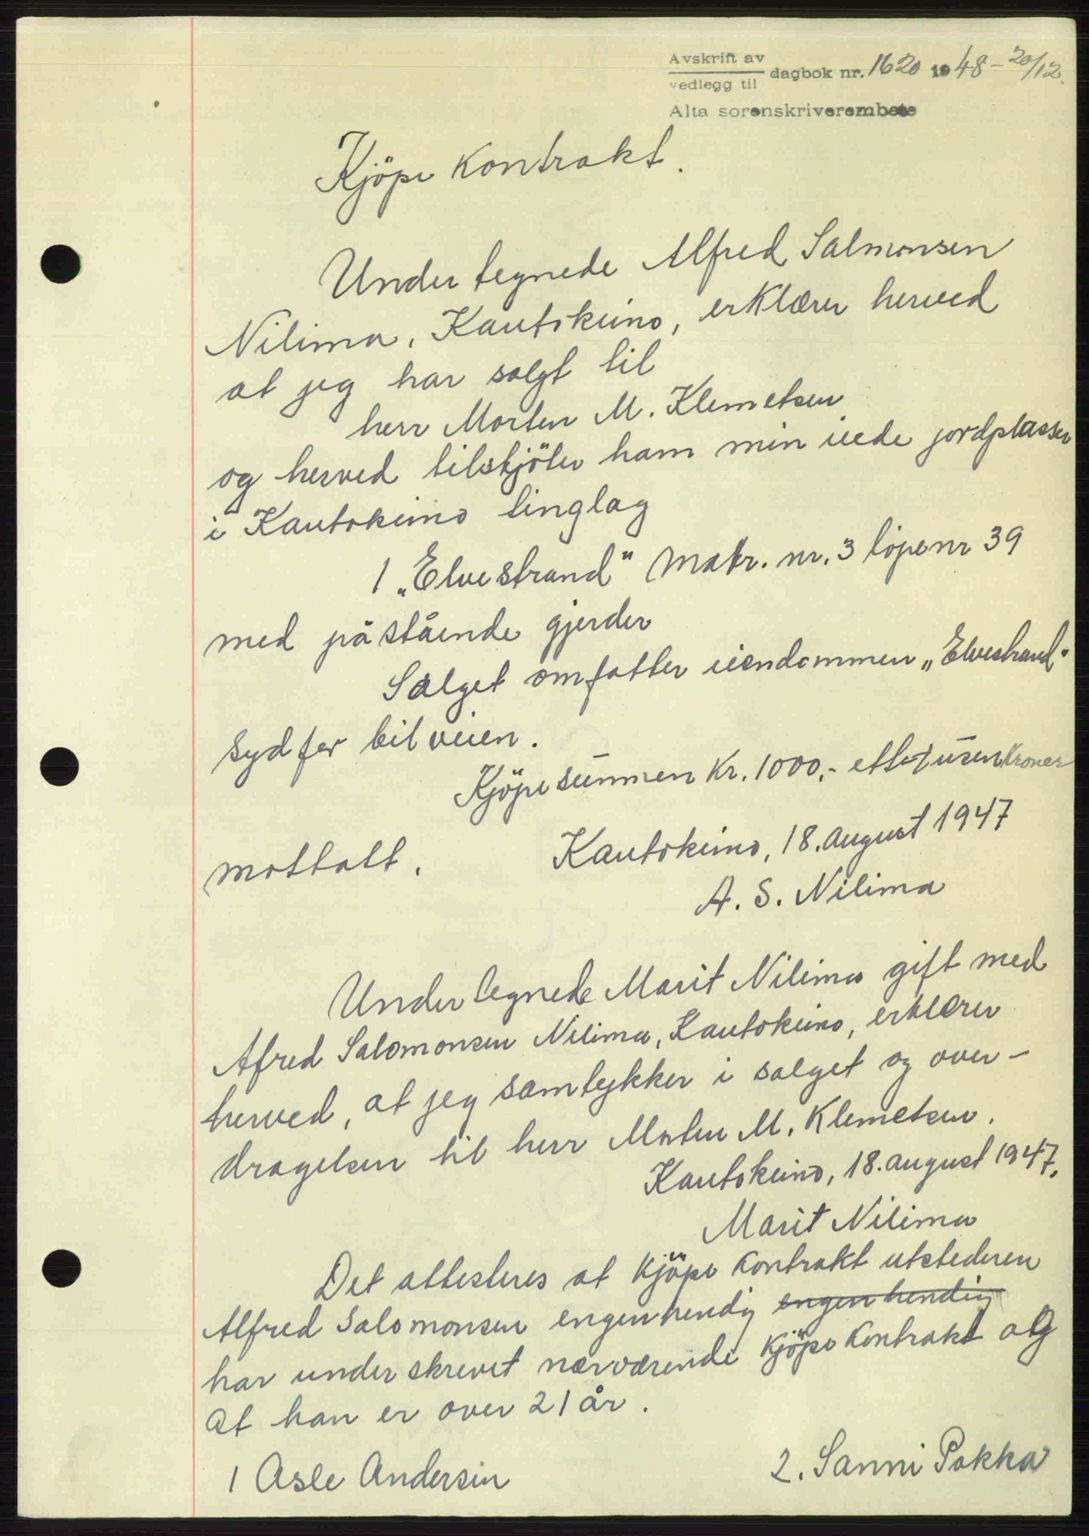 Avskrift av
vedlegg til dagbok nr. 1620 1948 - 20/12.
Alta sorenskriverembete
Kjöpe kontrakt.
Undertegnede Alfred Salmonsen
Nilima, Kautokeino, erklærer herved
at jeg har solgt til
herr Morten M. Klemetsen
og herved tilskjöter ham min iede jordplasser
i Kautokeino tinglag
1 „Elvestrand" Matr. nr. 3 löpenr 39
med påstående gjerder
Salget omfatter eiendommen „Elvestrand"
syd for bilveien.
Kjöpesummen kr. 1000,- ett-tusen kroner
mottatt. Kautokeino, 18. august 1947
A. S. Nilima
Undertegnede Marit Nilima gift med
Alfred Salomonsen Nilima, Kautokeino, erklærer
herved, at jeg samtykker i salget og over-
dragelsen til herr Morten M. Klemetsen.
Kautokeino, 18. august 1947.
Marit Nilima
Det attesteres at kjöpe kontrakt utstederen
Alfred Salomonsen engenhendig engenhendig
har underskrevet nærværende kjöpe kontrakt og
at han er over 21 år.
1 Asle Andersen 2. Sanni Pokka